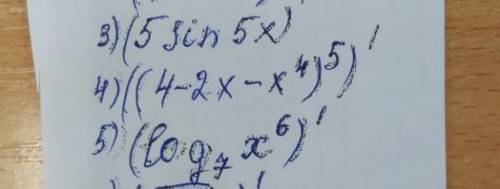 3) (5 sin 5x)
4) ((4-2x-x⁴)⁵)'
5) (log₇ x⁶)'